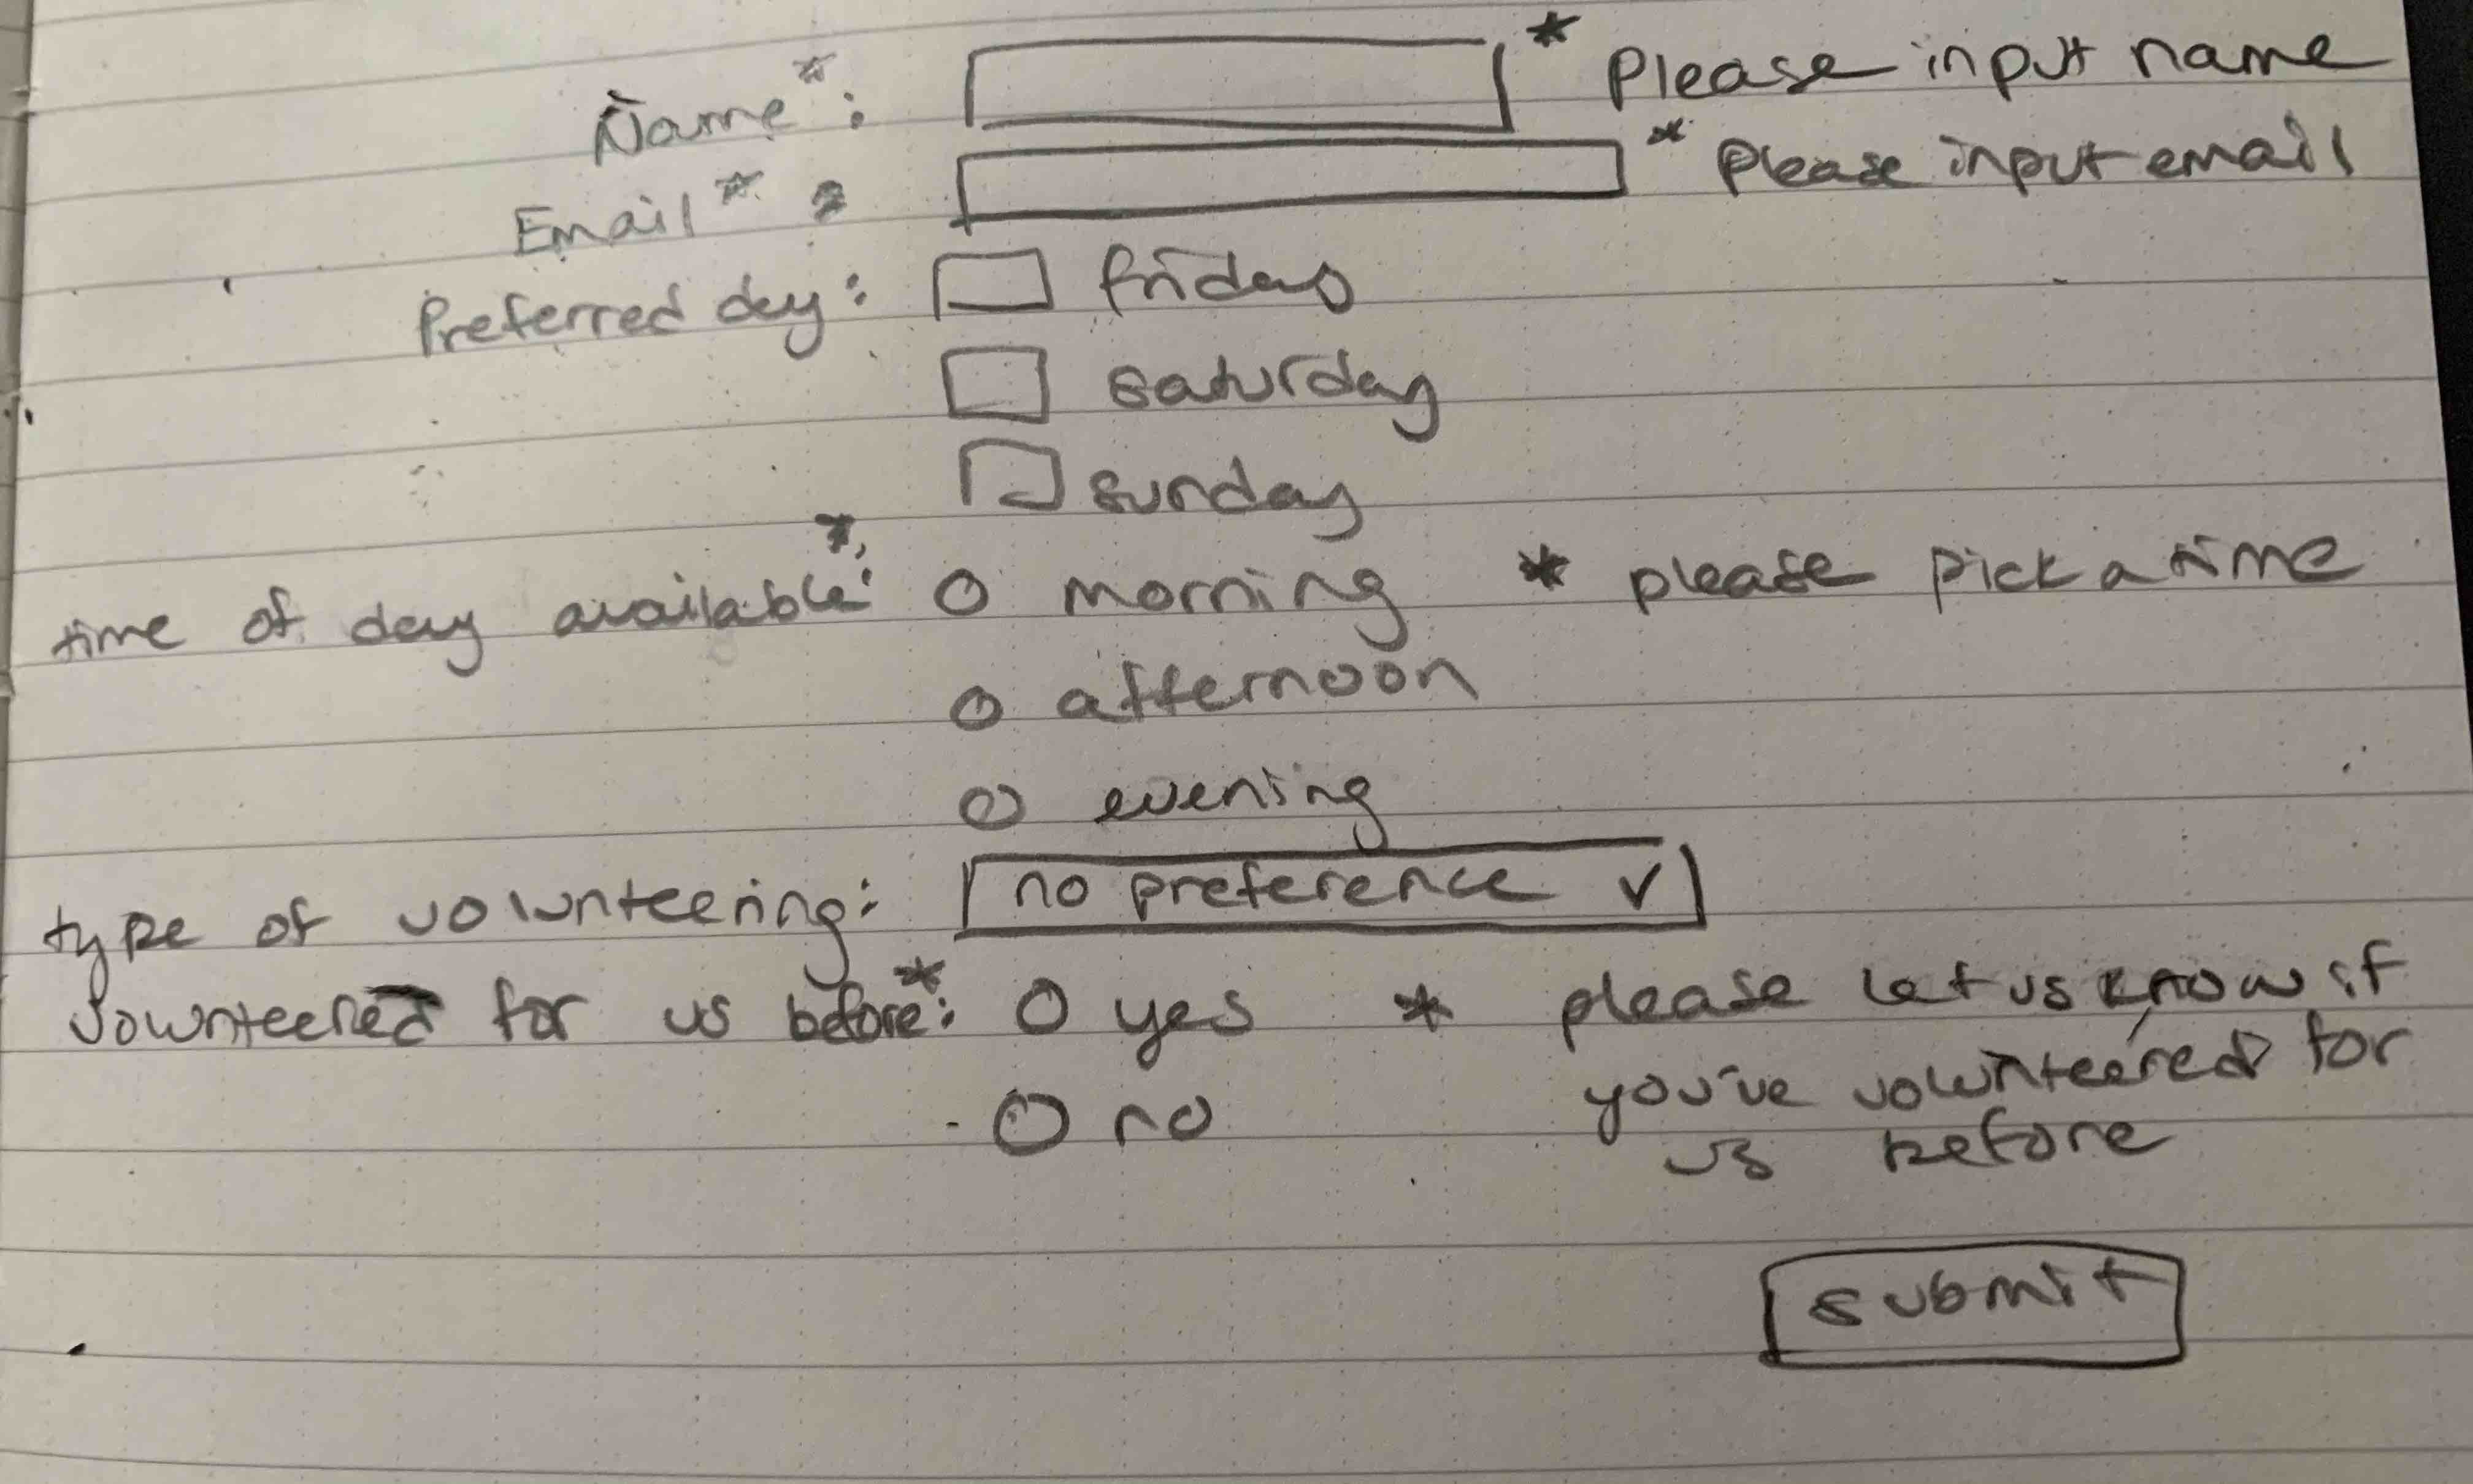 Name*: * Please input name
Email*: * Please input email
Preferred day: friday
saturday
sunday
time of day available*: morning * please pick a time
afternoon
evening
type of volunteering: no preference
volunteered for us before*: yes * please let us know if
you've volunteered for
no
us before
submit